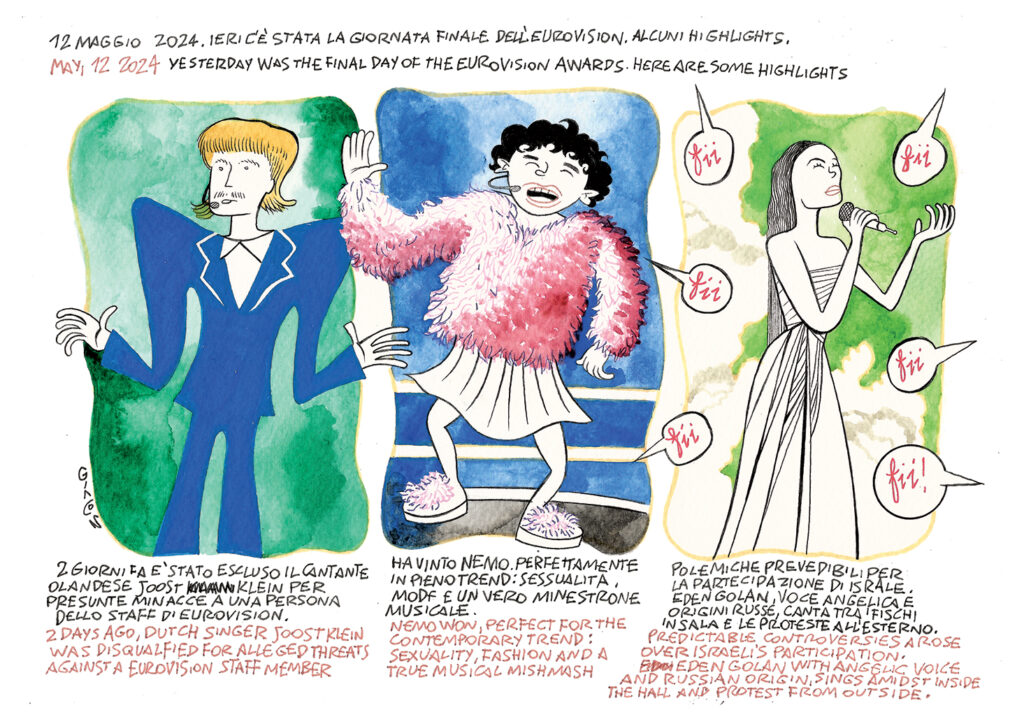 12 MAGGIO 2024. IERI C'È STATA LA GIORNATA FINALE DELL'EUROVISION. ALCUNI HIGHLIGHTS.
MAY, 12 2024 YESTERDAY WAS THE FINAL DAY OF THE EUROVISION AWARDS. HERE ARE SOME HIGHLIGHTS
fii
fii
fii
fii
fii
fii!
GIACON
2 GIORNI FA E' STATO ESCLUSO IL CANTANTE
OLANDESE JOOST KLEIN PER
PRESUNTE MINACCE A UNA PERSONA
DELLO STAFF DI EUROVISION.
2 DAYS AGO, DUTCH SINGER JOOST KLEIN
WAS DISQUALFIED FOR ALLEGED THREATS
AGAINST A EUROVISION STAFF MEMBER
HA VINTO NEMO. PERFETTAMENTE
IN PIENO TREND: SESSUALITÀ,
MODE E UN VERO MINESTRONE
MUSICALE.
NEMO WON, PERFECT FOR THE
CONTEMPORARY TREND:
SEXUALITY, FASHION AND A
TRUE MUSICAL MISHMASH
POLEMICHE PREVEDIBILI PER
LA PARTECIPAZIONE DI ISRALE.
EDEN GOLAN, VOCE ANGELICA E
ORIGINI RUSSE, CANTA TRA I FISCHI
IN SALA E LE PROTESTE ALL'ESTERNO.
PREDICTABLE CONTROVERSIES AROSE
OVER ISRAELI'S PARTICIPATION.
EDEN GOLAN WITH ANGELIC VOICE
AND RUSSIAN ORIGIN, SINGS AMIDST INSIDE
THE HALL AND PROTEST FROM OUTSIDE.